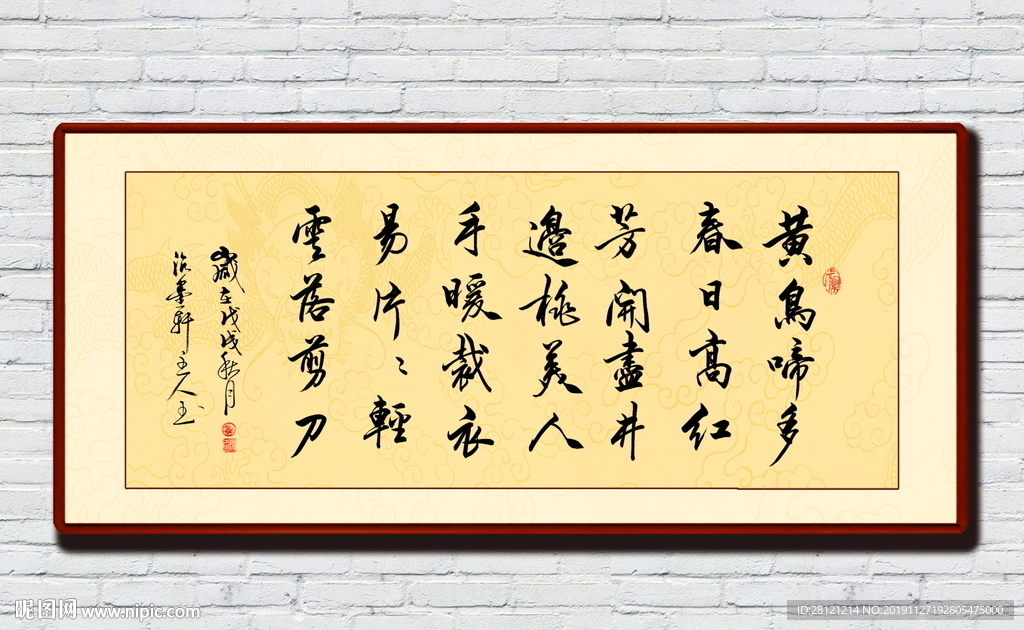 黃鳥啼多
春日高紅
芳開盡井
邊桃美人
手暖裁衣
易片〻輕
雲落剪刀
歲在戊戌秋月
主人玉
昵图网 www.nipic.com
ID:28121214 NO:20191127192805475000